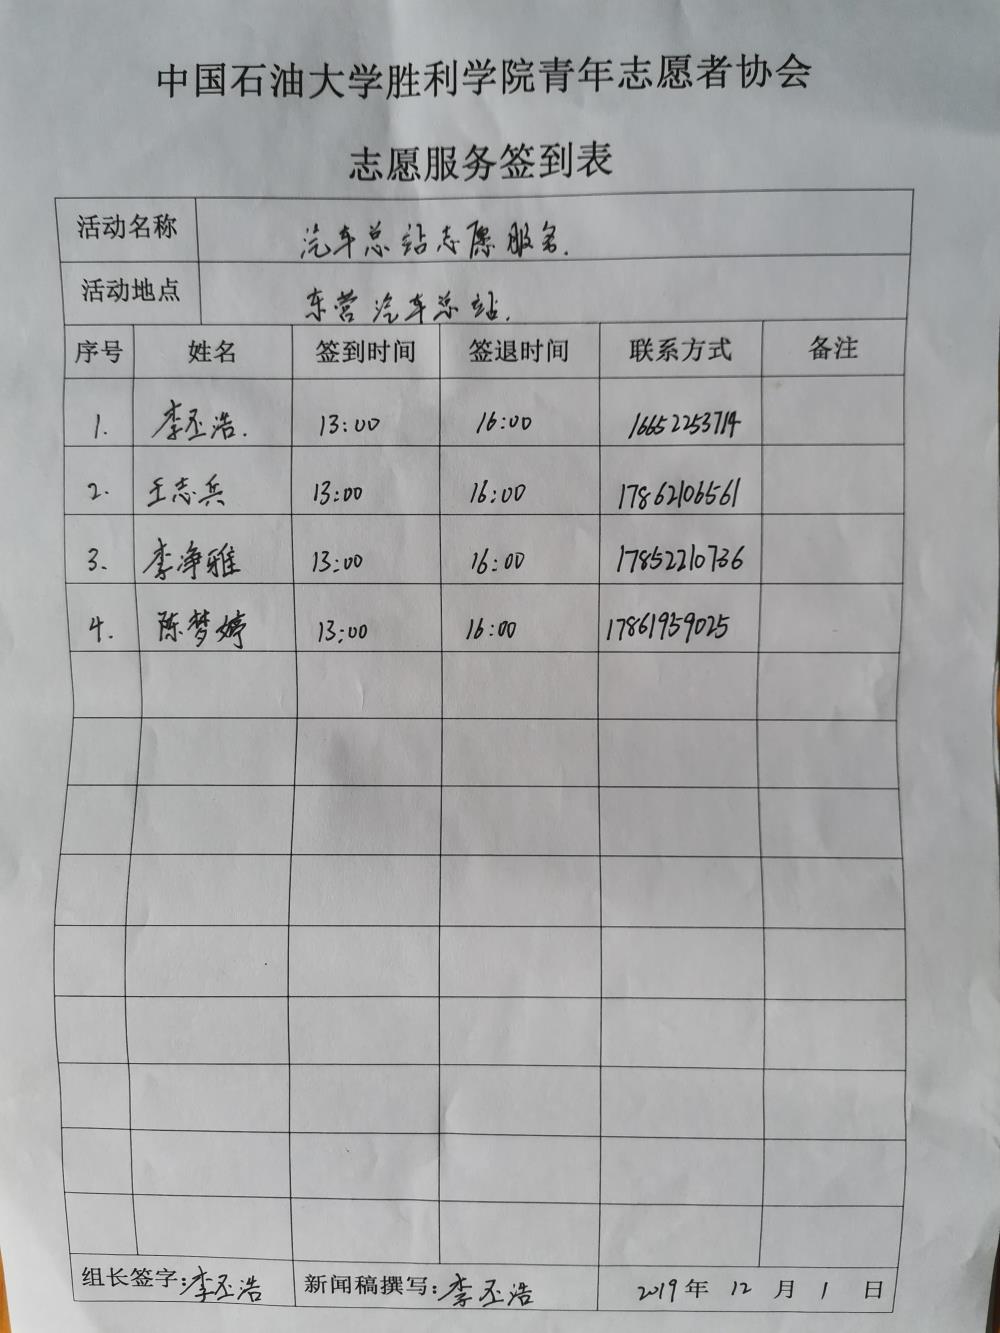 中国石油大学胜利学院青年志愿者协会
志愿服务签到表
活动名称 汽车总站志愿服务.
活动地点 东营汽车总站.
序号 姓名 签到时间 签退时间 联系方式 备注
1. 李丕浩. 13:00 16:00 16652253714
2. 王志兵 13:00 16:00 17862106561
3. 李净雅 13:00 16:00 17852210736
4. 陈梦婷 13:00 16:00 17861959025
组长签字:李丕浩 新闻稿撰写:李丕浩 2019年 12 月 1 日